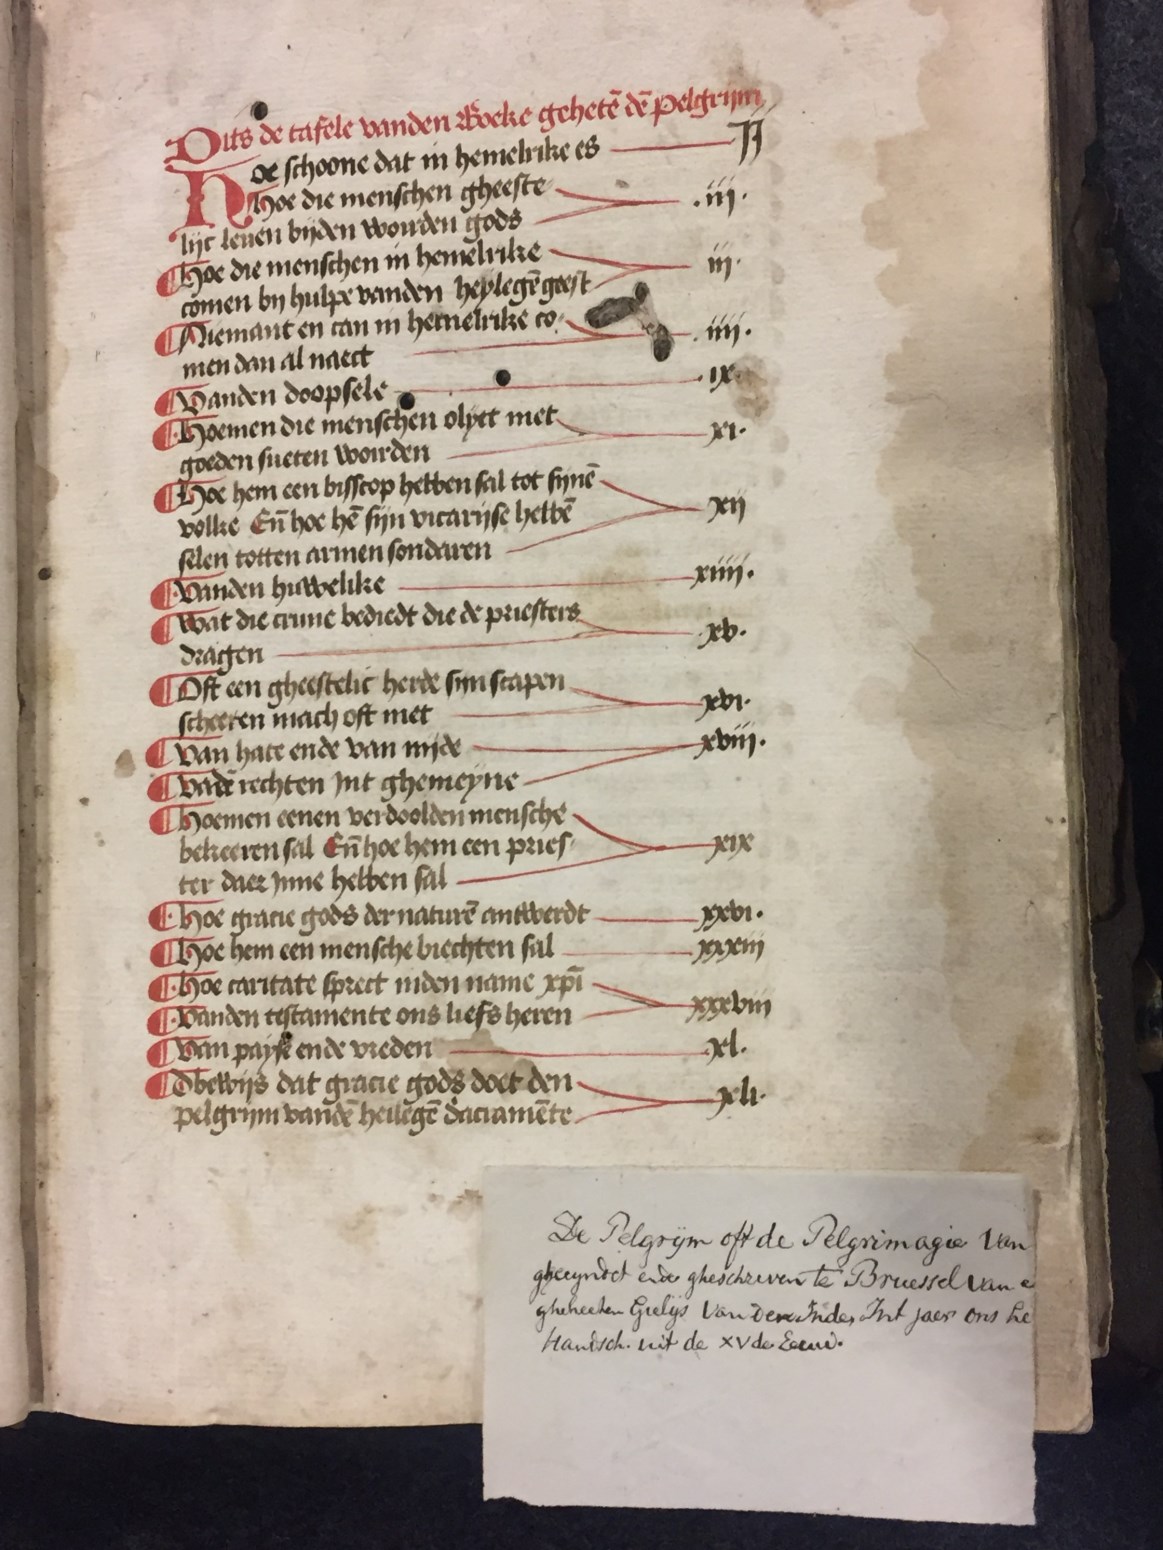 Dits de tafele vanden Boeke gehetē dē pelgrijm
Hoe schoone dat in hemelrike es IJ
Hoe die menschen gheeste .iij.
lijc leuen bijden woorden gods
Hoe die menschen in hemelrike iij.
comen by hulpe vanden heylegē geest
Niemant en can in hemelrike co .iiij.
men dan al naect
Vanden doopsele .ix.
Hoemen die menschen olyet met xi.
goeden sueten woorden
Hoe hem een bisscop hebben sal tot sijnē
volke En̄ hoe hē sijn vicarijse hebbē xij
selen totten armen sondaren
Vanden huwelike xiiij.
Wat die crune bediedt die de priesters
dragen xv.
Oft een gheestelic herde sijn scapen
scheeren mach oft niet xvi.
Van hate ende van nijde xviij.
Vadē rechten Int ghemeyne
Hoemen eenen verdoolden mensche
bekeeren sal En̄ hoe hem een pries xix
ter daer Inne hebben sal
Hoe gracie gods der naturē antwerdt xxvi.
Hoe hem een mensche biechten sal xxxiij
Hoe caritate sprect inden name xpī
Vanden testamente ons liefs heren xxxviij
Van payse ende vreden xl.
Tbewijs dat gracie gods doet den xli.
pelgrijm vandē heilegē sacramēte
De Pelgrÿm oft de Pelgrimagie Van
gheeyndet ende gheschreven te Bruessel van
gheheeten Gielÿs Van Int jaer ons he
Handsch. uit de XVde Eeuw.